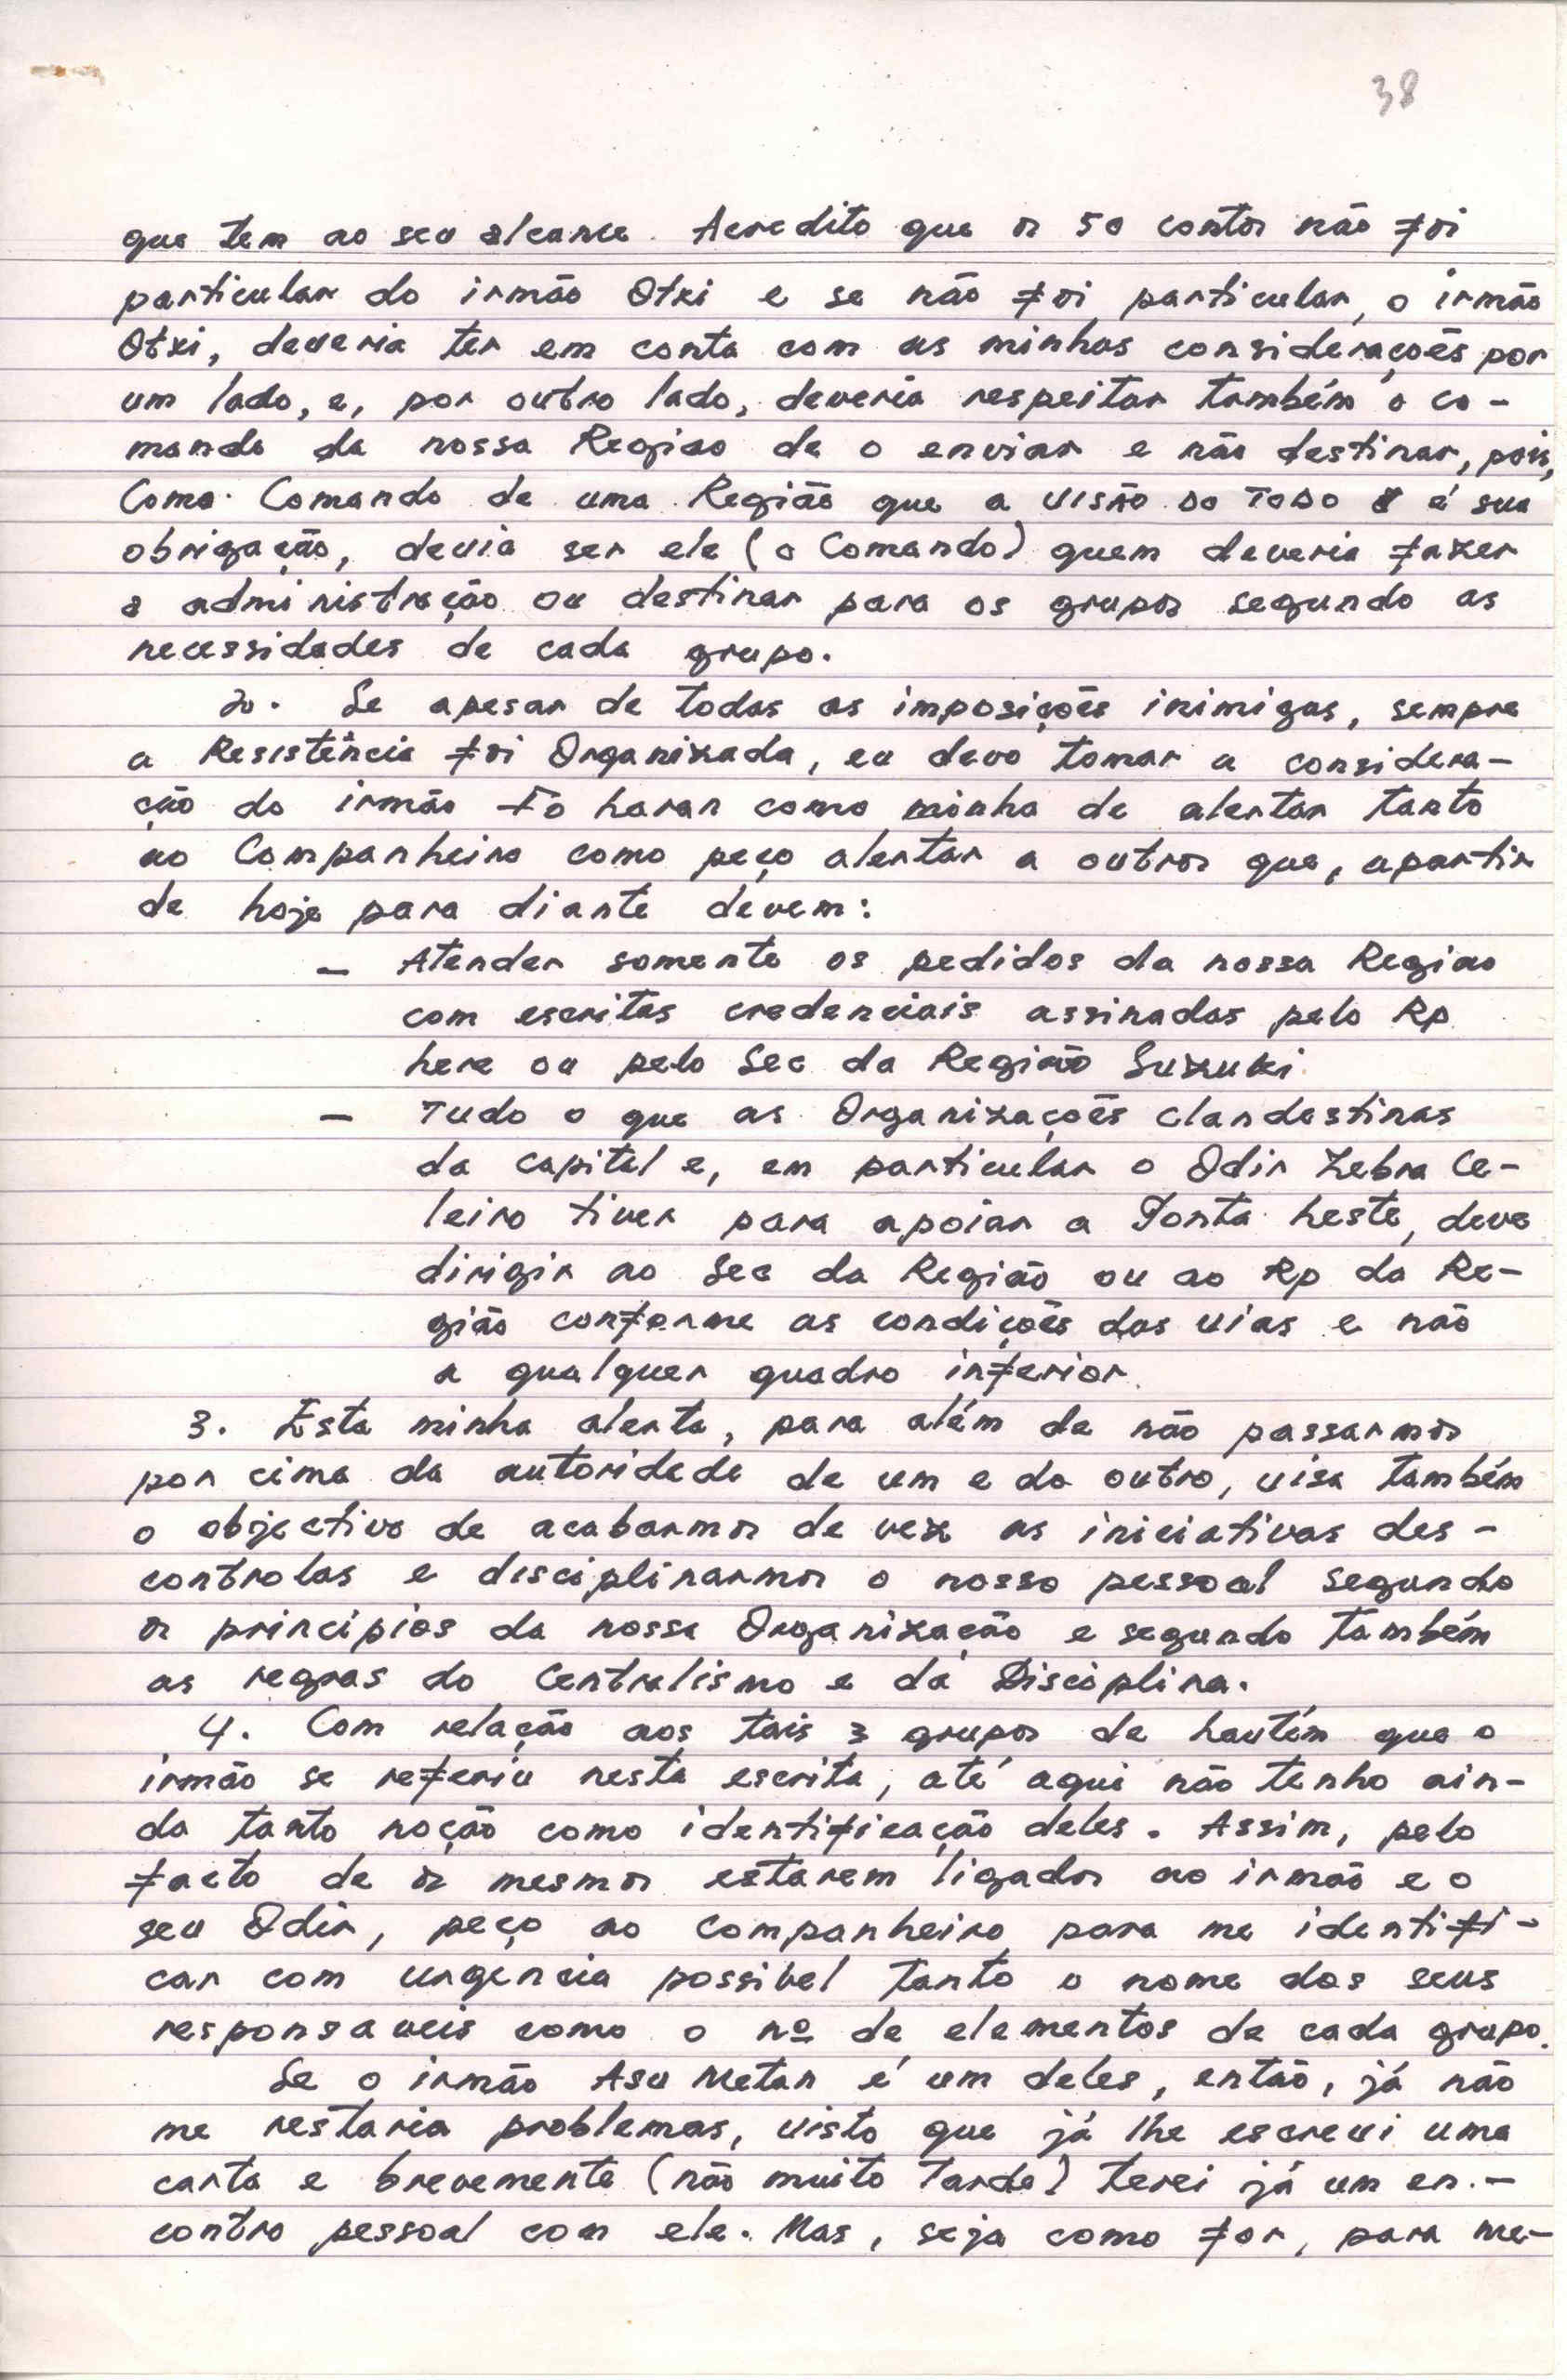 38
que tem ao seu alcance. Acredito que os 50 contos não foi
particular do irmão Otxi e se não foi particular, o irmão
Otxi, deveria ter em conta com as minhas considerações por
um lado, e, por outro lado, deveria respeitar também o co-
mando da nossa Regiao de o enviar e não destinar, pois,
Como Comando de uma Região que a VISÃO DO TODO é sua
obrigação, devia ser ele (o Comando) quem deveria fazer
a administração ou destinar para os grupos segundo as
necessidades de cada grupo.
2. Se apesar de todas as imposições inimigas, sempre
a Resistência foi Organizada, eu devo tomar a considera-
ção do irmão Fo haran como minha de alertar tanto
ao Companheiro como peço alertar a outros que, apartir
de hoje para diante devem:
- Atender somente os pedidos da nossa Regiao
com escritas credenciais assinadas pelo Rp
here ou pelo Sec da Região Suzuki
- Tudo o que as Organizações clandestinas
da capital e, em particular o Odir Zebra Ce-
leiro tiver para apoiar a Ponta Leste, deve
dirigir ao Sec da Região ou ao Rp da Re-
gião conforme as condições das vias e não
a qualquer quadro inferior.
3. Esta minha alerta, para além de não passarmos
por cima da autoridade de um e do outro, visa também
o objectivo de acabarmos de vez as iniciativas des-
controlas e disciplinarmos o nosso pessoal segundo
os principios da nossa Organização e segundo também
as regras do Centralismo e da Disciplina.
4. Com relação aos tais 3 grupos de Lautém que o
irmão se referiu nesta escrita, até aqui não tenho ain-
da tanto noção como identificação deles. Assim, pelo
facto de os mesmos estarem ligados ao irmão e o
seu Odir, peço ao companheiro para me identifi-
car com urgencia possivel tanto o nome dos seus
responsaveis como o nº de elementos de cada grupo.
Se o irmão Asu Metan é um deles, então, já não
me restaria problemas, visto que já lhe escrevi uma
carta e brevemente (não muito Tarde) terei já um en.-
contro pessoal com ele. Mas, seja como for, para me-